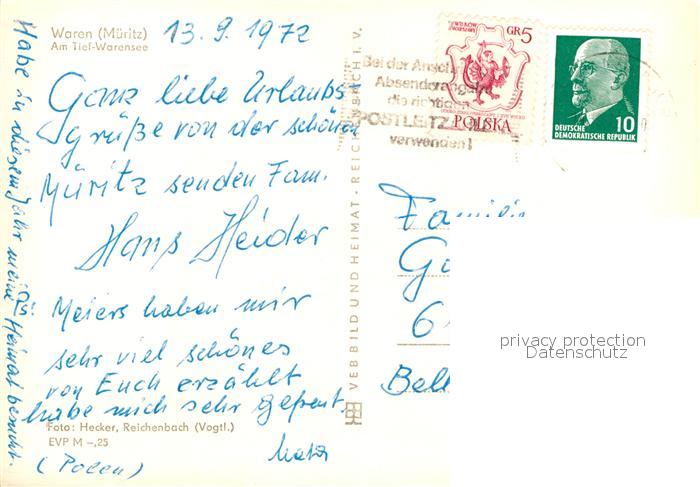 Waren (Müritz)
Am Tief-Warensee
13.9.1972
Ganz liebe Urlaubs-
grüße von der schönen
Müritz senden Fam.
Hans Heider
Meiers haben mir
sehr viel schönes
von Euch erzählt
habe mich sehr gefreut.
Habe in diesem Jahr meine Heimat besucht.
(Polen)
Foto: Hecker, Reichenbach (Vogtl.)
EVP M -,25
VEB BILD UND HEIMAT · REICHENBACH I. V.
GR 5
POLSKA
Bei der
Absenderangabe
die richtige
POSTLEITZ
verwenden!
10
DEUTSCHE
DEMOKRATISCHE REPUBLIK
Familie
privacy protection
Datenschutz